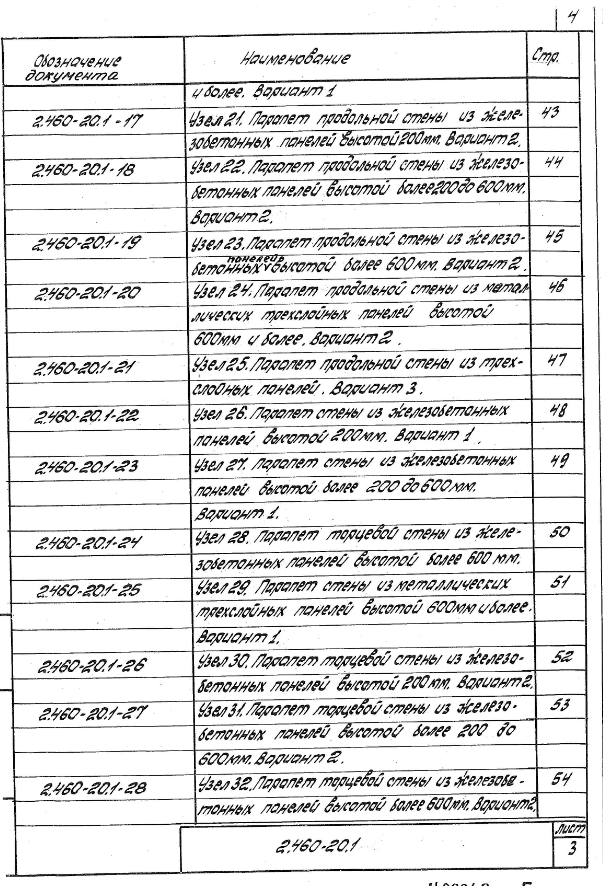 4
Обозначение документа | Наименование | Стр.
и более. Вариант 1
2.460-20.1-17 | Узел 21. Парапет продольной стены из желе- | 43
зобетонных панелей высотой 200мм. Вариант 2.
2.460-20.1-18 | Узел 22. Парапет продольной стены из железо- | 44
бетонных панелей высотой более 200 до 600мм.
Вариант 2.
2.460-20.1-19 | Узел 23. Парапет продольной стены из железо- | 45
бетонных панелей высотой более 600мм. Вариант 2.
2.460-20.1-20 | Узел 24. Парапет продольной стены из метал- | 46
лических трехслойных панелей высотой
600мм и более. Вариант 2.
2.460-20.1-21 | Узел 25. Парапет продольной стены из трех- | 47
слойных панелей. Вариант 3.
2.460-20.1-22 | Узел 26. Парапет стены из железобетонных | 48
панелей высотой 200мм. Вариант 1.
2.460-20.1-23 | Узел 27. Парапет стены из железобетонных | 49
панелей высотой более 200 до 600мм.
Вариант 1.
2.460-20.1-24 | Узел 28. Парапет торцевой стены из желе- | 50
зобетонных панелей высотой более 600 мм.
2.460-20.1-25 | Узел 29. Парапет стены из металлических | 51
трехслойных панелей высотой 600мм и более.
Вариант 1.
2.460-20.1-26 | Узел 30. Парапет торцевой стены из железо- | 52
бетонных панелей высотой 200мм. Вариант 2.
2.460-20.1-27 | Узел 31. Парапет торцевой стены из железо- | 53
бетонных панелей высотой более 200 до
600мм. Вариант 2.
2.460-20.1-28 | Узел 32. Парапет торцевой стены из железобе- | 54
тонных панелей высотой более 600мм. Вариант 2.
2.460-20.1 | Лист
3